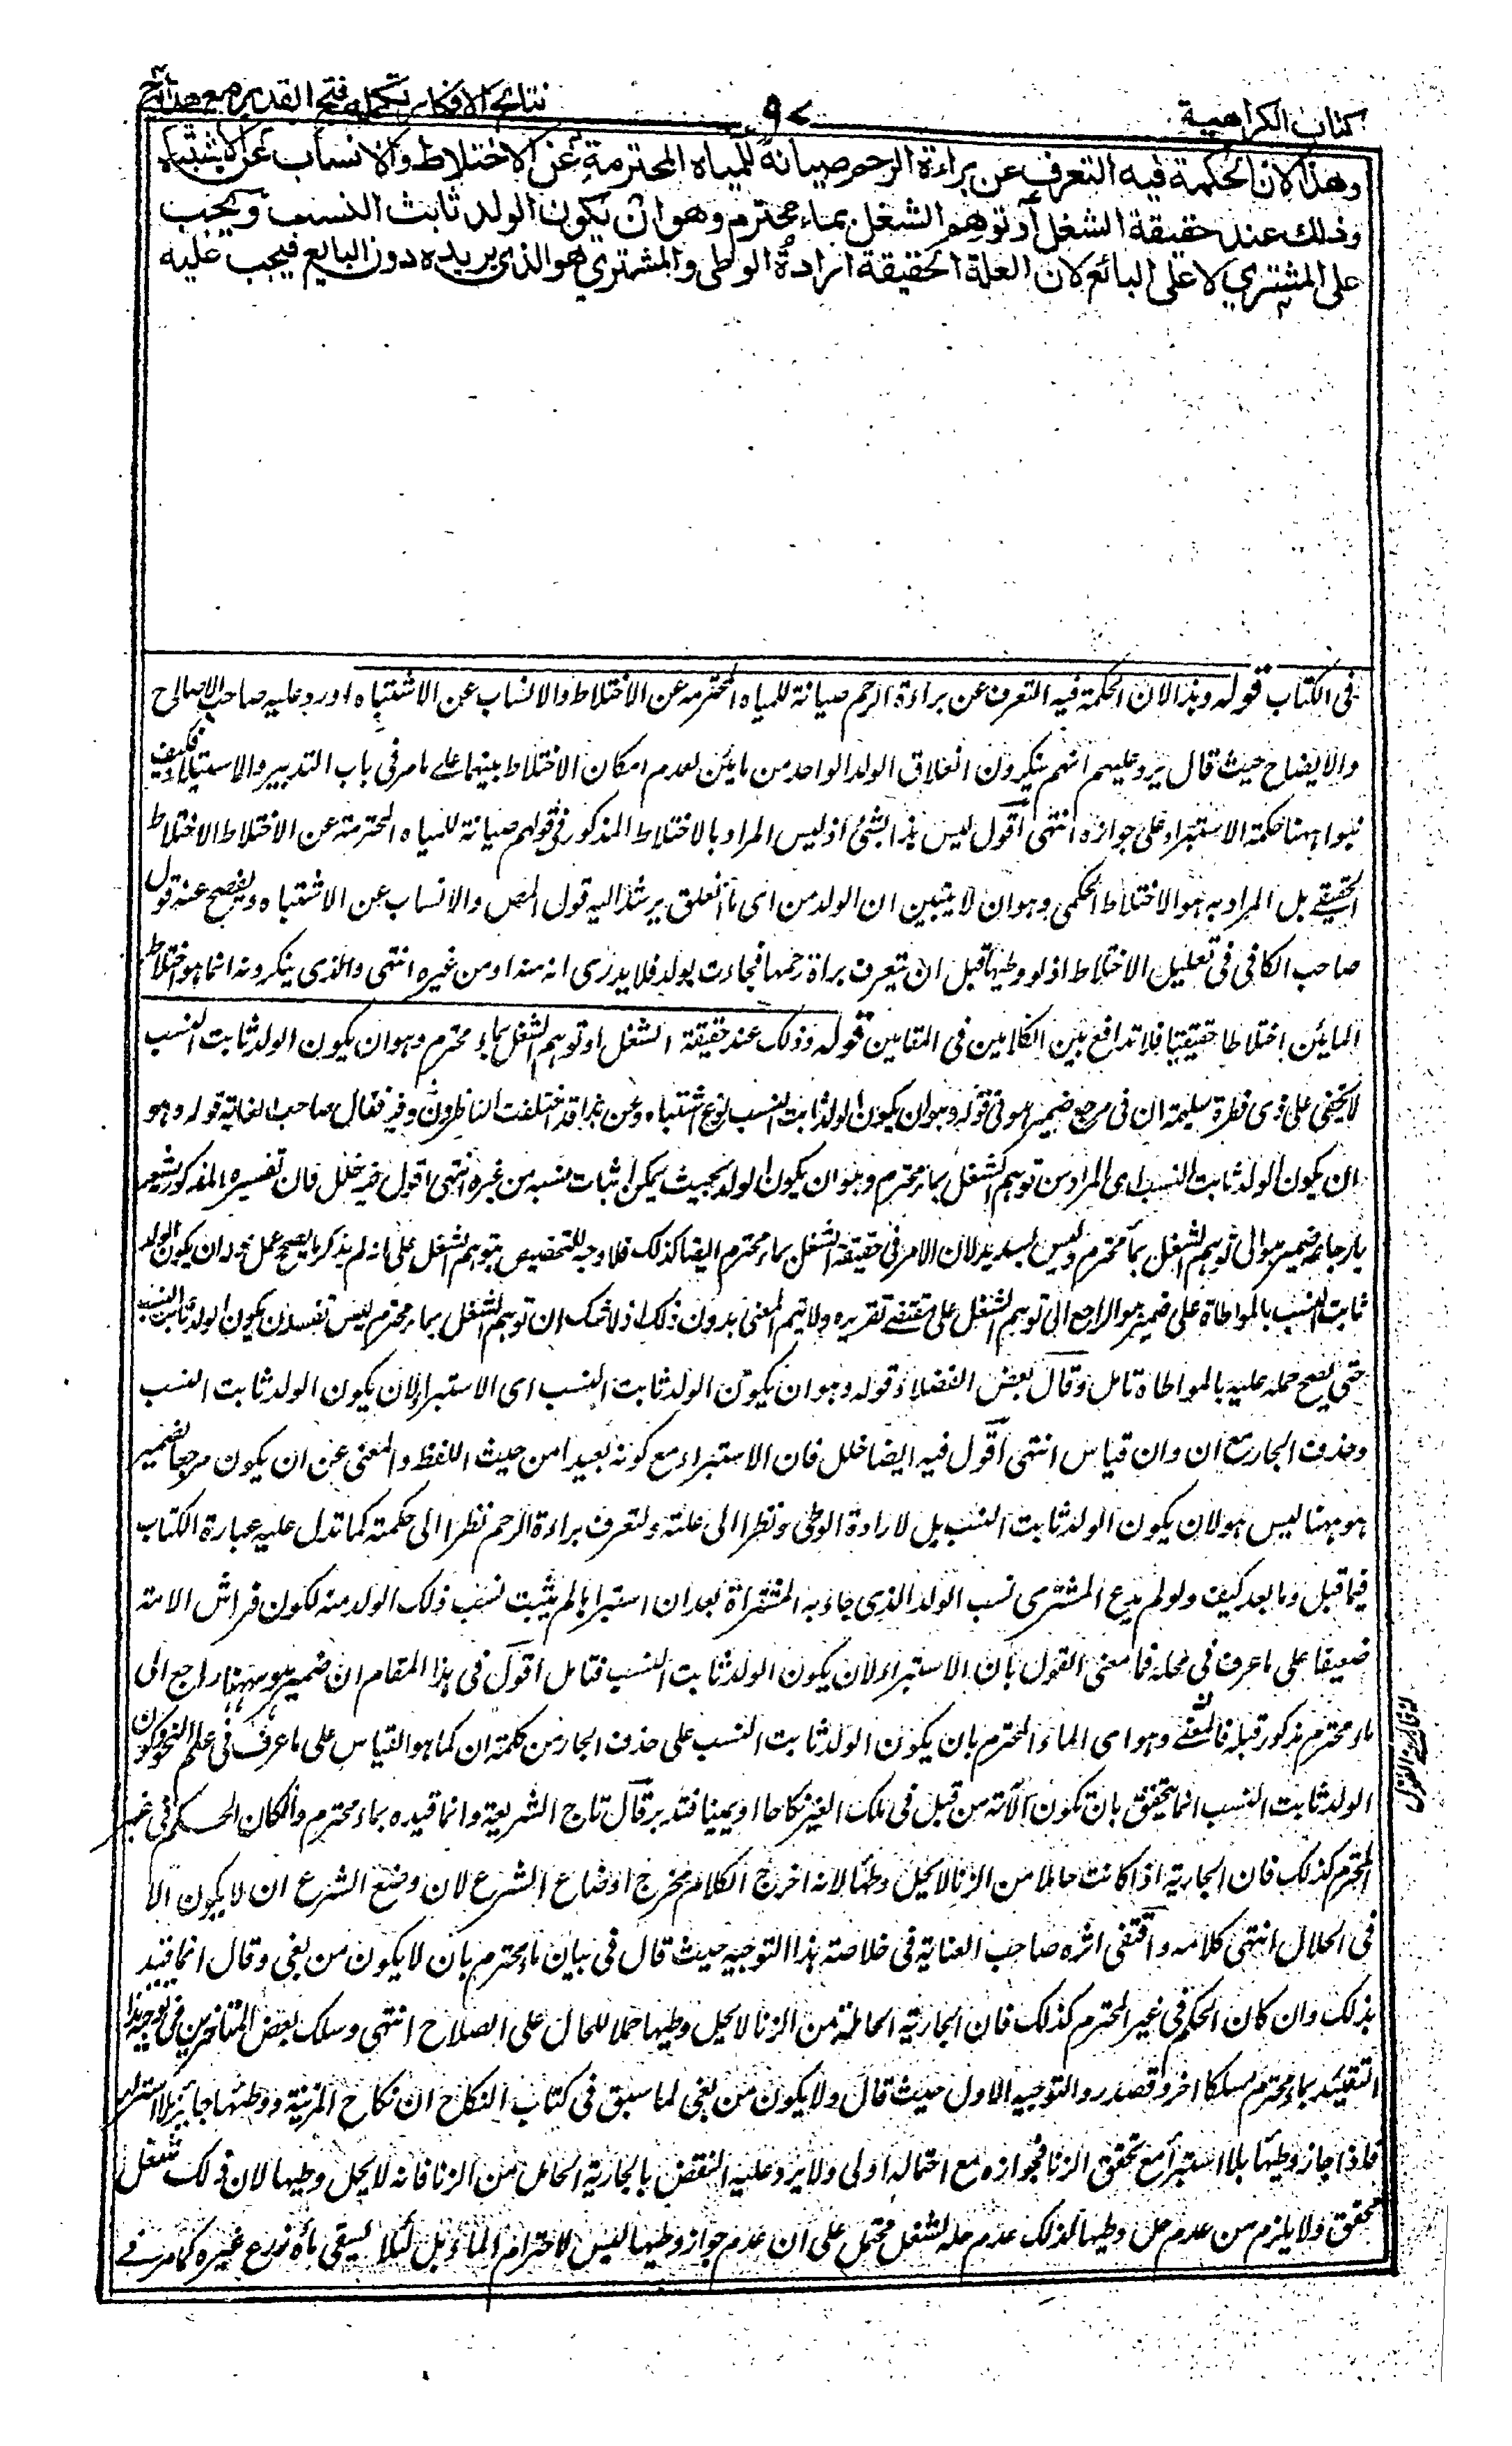 كتاب الكراهية
٩٧
نتائج الافكار تكمله فتح القدير مع هدايه
وهذا لان الحكمة فيه التعرف عن براءة الرحم صيانة للمياه المحترمة عن الاختلاط والانساب عن الاشتباه
وذلك عند حقيقة الشغل أو توهم الشغل بماء محترم وهو ان يكون الولد ثابت النسب ويجب
على المشتري لا على البائع لان العلة الحقيقة ارادة الوطى والمشتري هو الذي يريده دون البائع فيجب عليه
فى الكتاب قوله وهذا لان الحكمة فيه التعرف عن براءة الرحم صيانة للمياه المحترمة عن الاختلاط والانساب عن الاشتباه اورد عليه صاحب الاصلاح
والايضاح حيث قال يرد عليهم انهم ينكرون انغلاق الولد الواحد من مائين لعدم امكان الاختلاط بينهما على ما مر فى باب التدبير والاستيلاد فكيف
بنوا ههنا حكمة الاستبراء على جوازه انتهى اقول ليس هذا بشئ اذ ليس المراد بالاختلاط المذكور فى قولهم صيانة للمياه المحترمة عن الاختلاط الاختلاط
الحقيقي بل المراد به هو الاختلاط الحكمي وهو ان لا يتبين ان الولد من اى ماء انغلق يرشد اليه قول المص والانساب عن الاشتباه ويفصح عنه قول
صاحب الكافى فى تعليل الاختلاط اذ لو وطيها قبل ان يتعرف براءة رحمها فجاءت بولد فلا يدرى انه منه او من غيره انتهى والذى ينكرونه انما هو اختلاط
المائين اختلاطا حقيقيا فلا تدافع بين الكلامين فى المقامين قوله وذلك عند حقيقة الشغل او توهم الشغل بماء محترم وهو ان يكون الولد ثابت النسب
لا يخفى على ذى فطرة سليمة ان فى مرجع ضمير هو فى قوله وهو ان يكون الولد ثابت النسب نوع اشتباه وعن هذا قد اختلفت الناظرون فيه فقال صاحب الغاية قوله وهو
ان يكون الولد ثابت النسب اى المراد من توهم الشغل بماء محترم وهو ان يكون الولد بحيث يمكن اثبات نسبه من غيره انتهى اقول فيه خلل فان تفسيره المذكور يشعر
بارجاعه ضمير هو الى توهم الشغل بماء محترم وليس بسديد لان الامر فى حقيقة الشغل بماء محترم ايضا كذلك فلا وجه للتخصيص بتوهم الشغل على انه لم يذكر ما يصح حمل ان يكون الولد
ثابت النسب بالمواطاة على ضمير هو الراجع الى توهم الشغل على مقتضى تقريره ولا يتم المعنى بدون ذلك اذ لا شك ان توهم الشغل بماء محترم ليس نفس ان يكون الولد ثابت النسب
حتى يصح حمله عليه بالمواطاة تامل وقال بعض الفضلاء قوله وهو ان يكون الولد ثابت النسب اى الاستبراء لان يكون الولد ثابت النسب
وحذف الجار مع ان وان قياس انتهى اقول فيه ايضا خلل فان الاستبراء مع كونه بعيدا من حيث اللفظ والمعنى عن ان يكون مرجعا لضمير
هو ههنا ليس هو لان يكون الولد ثابت النسب بل لارادة الوطى نظرا الى علته ولتعرف براءة الرحم نظرا الى حكمته كما تدل عليه عبارة الكتاب
فيما قبل وما بعد كيف ولو لم يدع المشترى نسب الولد الذى جاءت به المشتراة بعد ان استبرأها لم يثبت نسب ذلك الولد منه لكون فراش الامة
ضعيفا على ما عرف فى محله فما معنى القول بان الاستبراء لان يكون الولد ثابت النسب فتامل اقول فى هذا المقام ان ضمير هو ههنا راجع الى
ماء محترم مذكور قبله فالمعنى وهو اى الماء المحترم بان يكون الولد ثابت النسب على حذف الجار من كلمة ان كما هو القياس على ما عرف فى علم النحو وكون
الولد ثابت النسب انما يتحقق بان تكون الامة من قبل فى ملك الغير نكاحا او يمينا فتدبر قال تاج الشريعة وانما قيده بماء محترم وان كان الحكم فى غير
المحترم كذلك فان الجارية اذا كانت حاملا من الزنا لا يحل وطئها لانه اخرج الكلام مخرج اوضاع الشرع لان وضع الشرع ان لا يكون الا
فى الحلال انتهى كلامه واقتفى اثره صاحب العناية فى خلاصة هذا التوجيه حيث قال فى بيان ماء محترم بان لا يكون من بغى وقال انما قيد
بذلك وان كان الحكم فى غير المحترم كذلك فان الجارية الحاملة من الزنا لا يحل وطيها حملا للحال على الصلاح انتهى وسلك بعض المتاخرين فى توجيه هذا
التقييد بماء محترم مسلكا اخر وقصد رد التوجيه الاول حيث قال ولا يكون من بغى لما سبق فى كتاب النكاح ان نكاح المزنية ووطئها جائز بلا استبراء
فلذا جاز وطئها بلا استبراء مع تحقق الزنا فجوازه مع احتماله اولى ولا يرد عليه النقض بالجارية الحامل من الزنا فانه لا يحل وطيها لان ذلك شغل
محقق ولا يلزم من عدم حل وطيها لذلك عدم حله لشغل محتمل على ان عدم جواز وطيها ليس لاحترام الماء بل لئلا يسقى ماءه زرع غيره كما مر فى